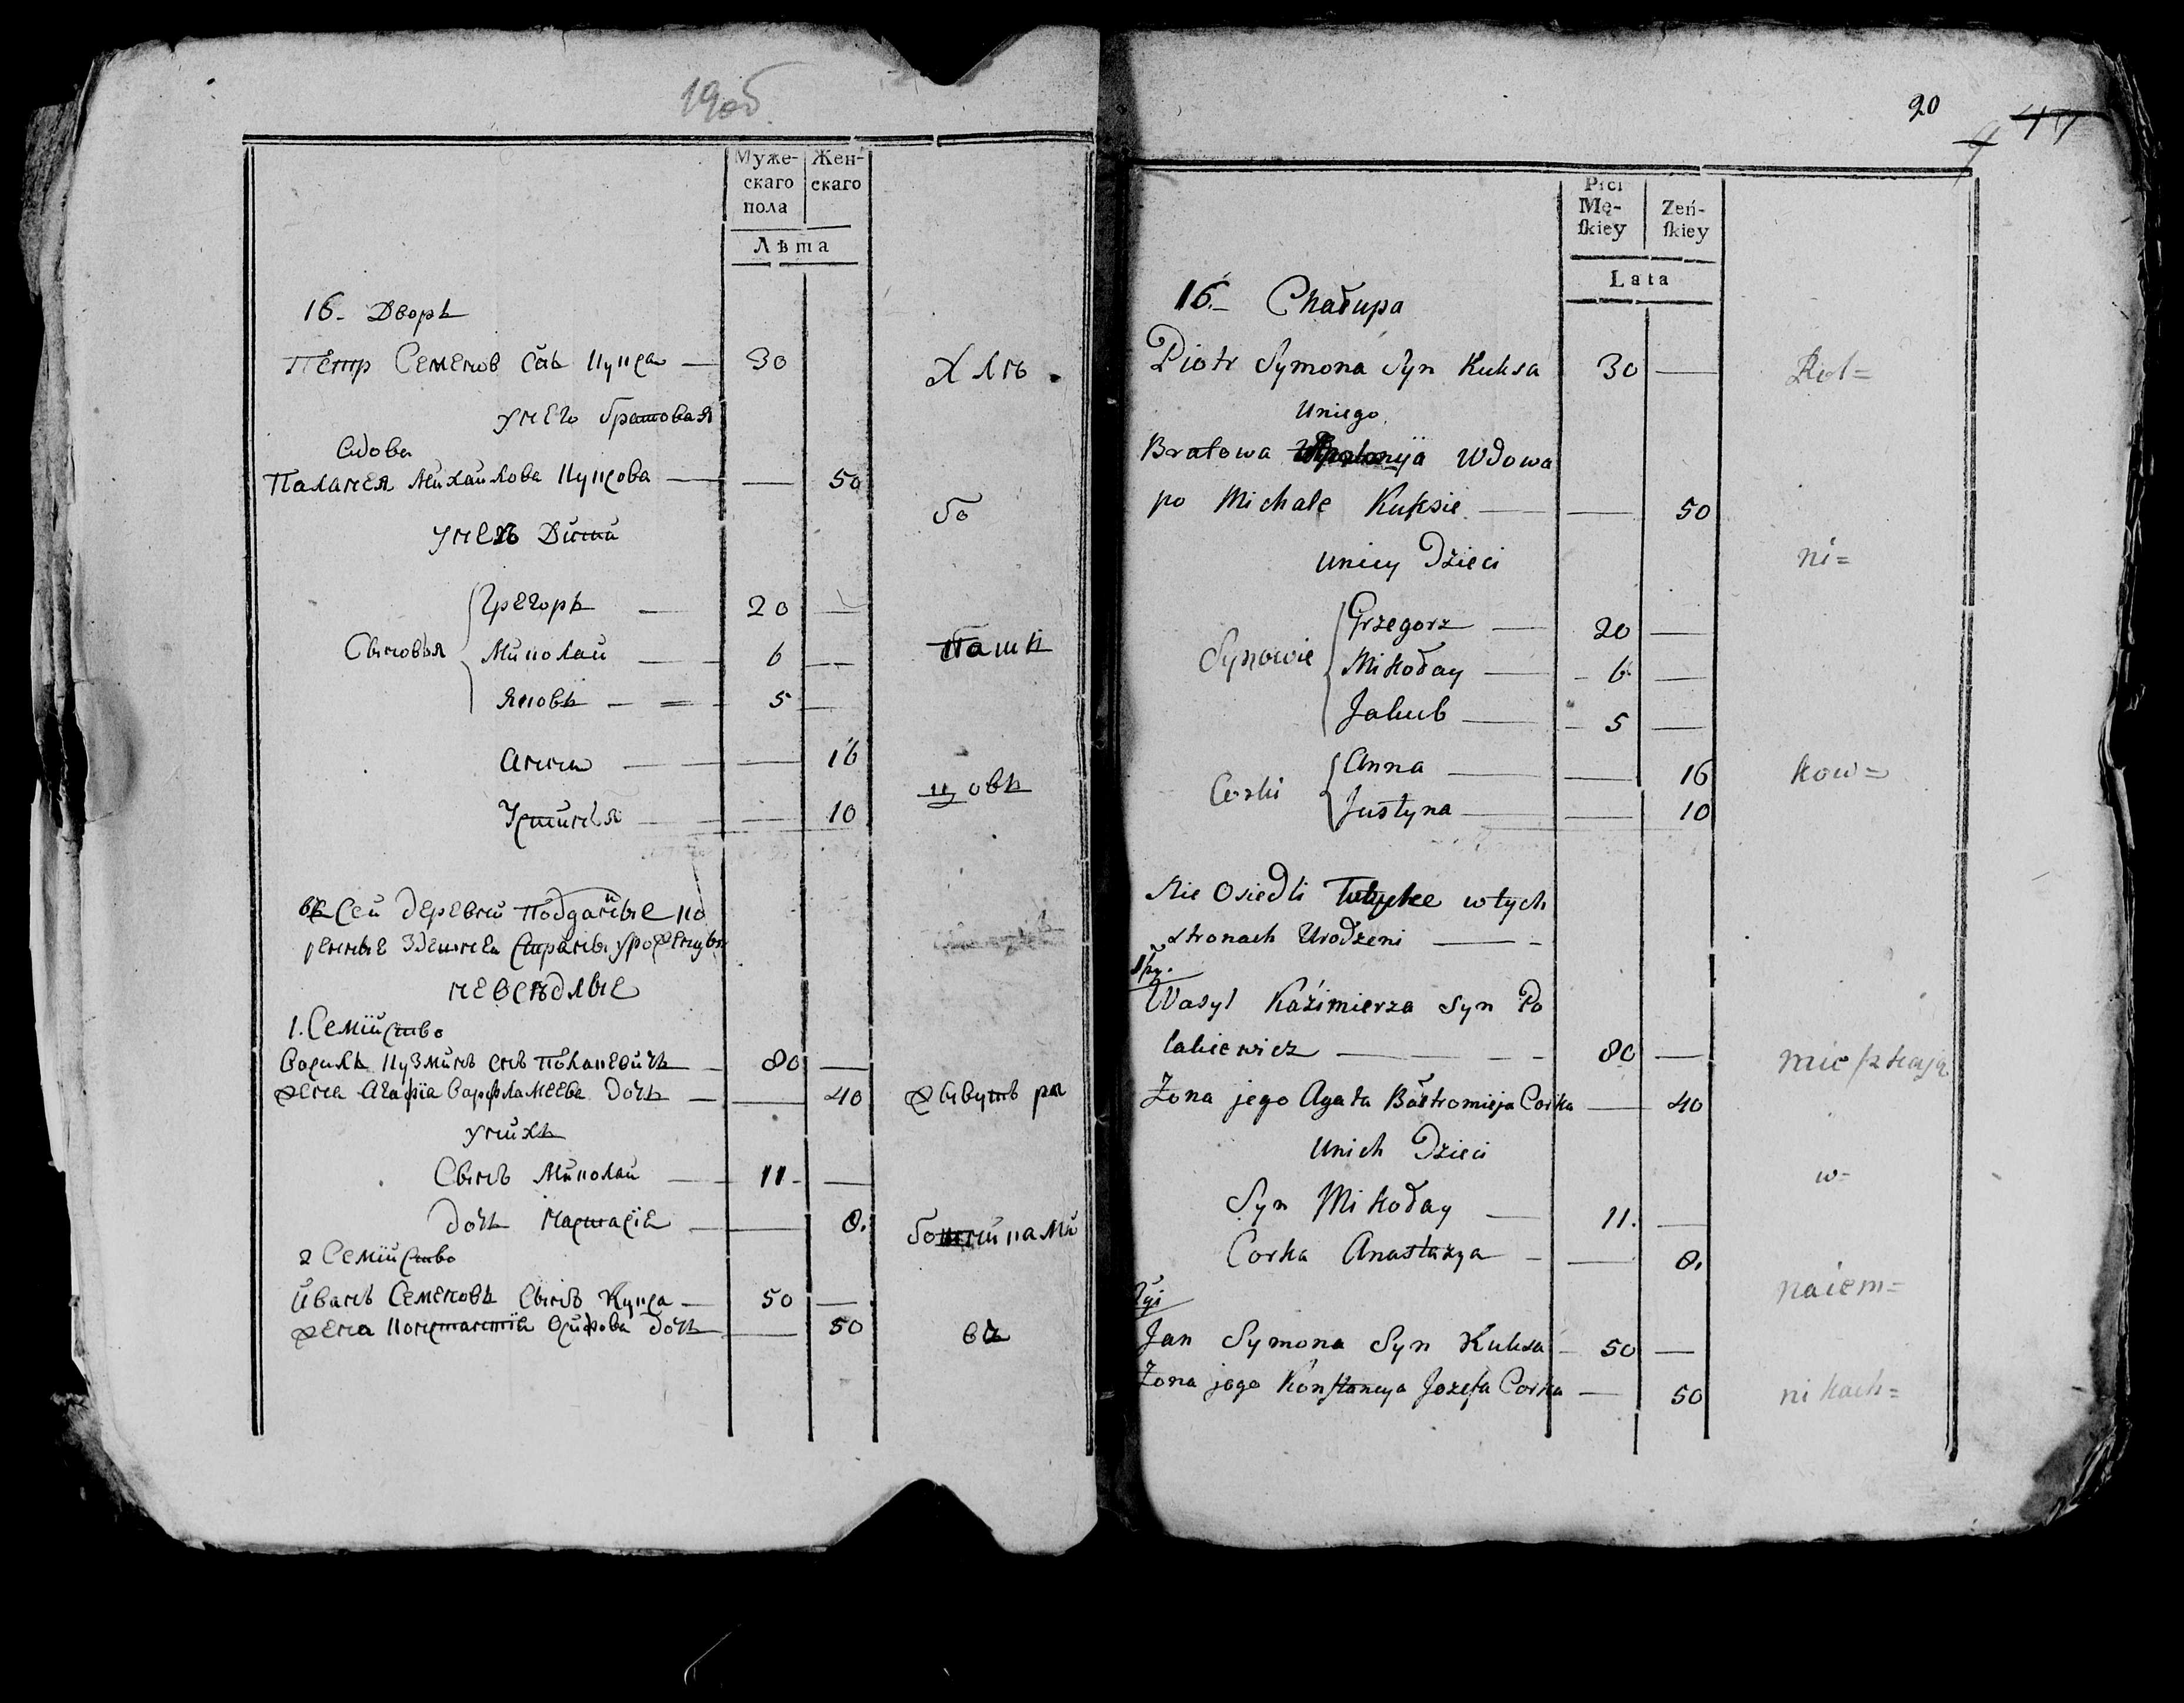 19об.
Муже-
скаго
пола
Жен-
скаго
Лѣта
16- Дворъ
Петр Семенов снъ Кукса — 30
Хлѣ
у него братовая
вдова
Паланея Михайлова Куксова — — 50
бо
у нея Дити
Сыновья
Грегоръ — 20 —
Миколай — 6 —
паши
Яковъ — 5 —
Анна — — 16
цовъ
Устинья — — 10
въ сей деревни Подданые ко
ренные здешнея страны уроженцы
неоседлые
1. Семийство
Василь Кузминъ снъ Полакевичъ — 80 —
жена Агафіа Варфламеева дочь — — 40
живутъ
у нихъ
Сынъ Миколай — 11 - —
дочь Настасіа — — 8.
2 Семийство
Иванъ Семеновъ Сынъ Кукса — 50 —
жена Константіа Осифова дочь — — 50
20
Płci
Mę-
ſkiey
Zeń-
ſkiey
Lata
16.- Chałupa
Piotr Symona Syn Kuksa 30 —
Rol=
Uniego
Bratowa Apolonija Wdowa
po Michale Kuksie — — 50
ni=
Uniey Dzieci
Synowie
Grzegorz — 20 —
Mikołay — 6 —
Jakub — 5 —
Corki
Anna — — 16
kow=
Justyna — — 10
Nie Osiedli Tutysze wtych
stronach Urodzeni — -
1szy.
Wasyl Kaźimierza Syn Po
lakiewicz — — - - 80 —
mieſzkają
Zona jego Agata Bałtromieja Corka — 40
Unich Dzieci
w-
Syn Mikołay — 11. —
Corka Anastazya - — 8.
naiem=
2gi
Jan Symona Syn Kuksa - 50 —
Zona jego Konſtancya Jozefa Corka — 50
nikach=